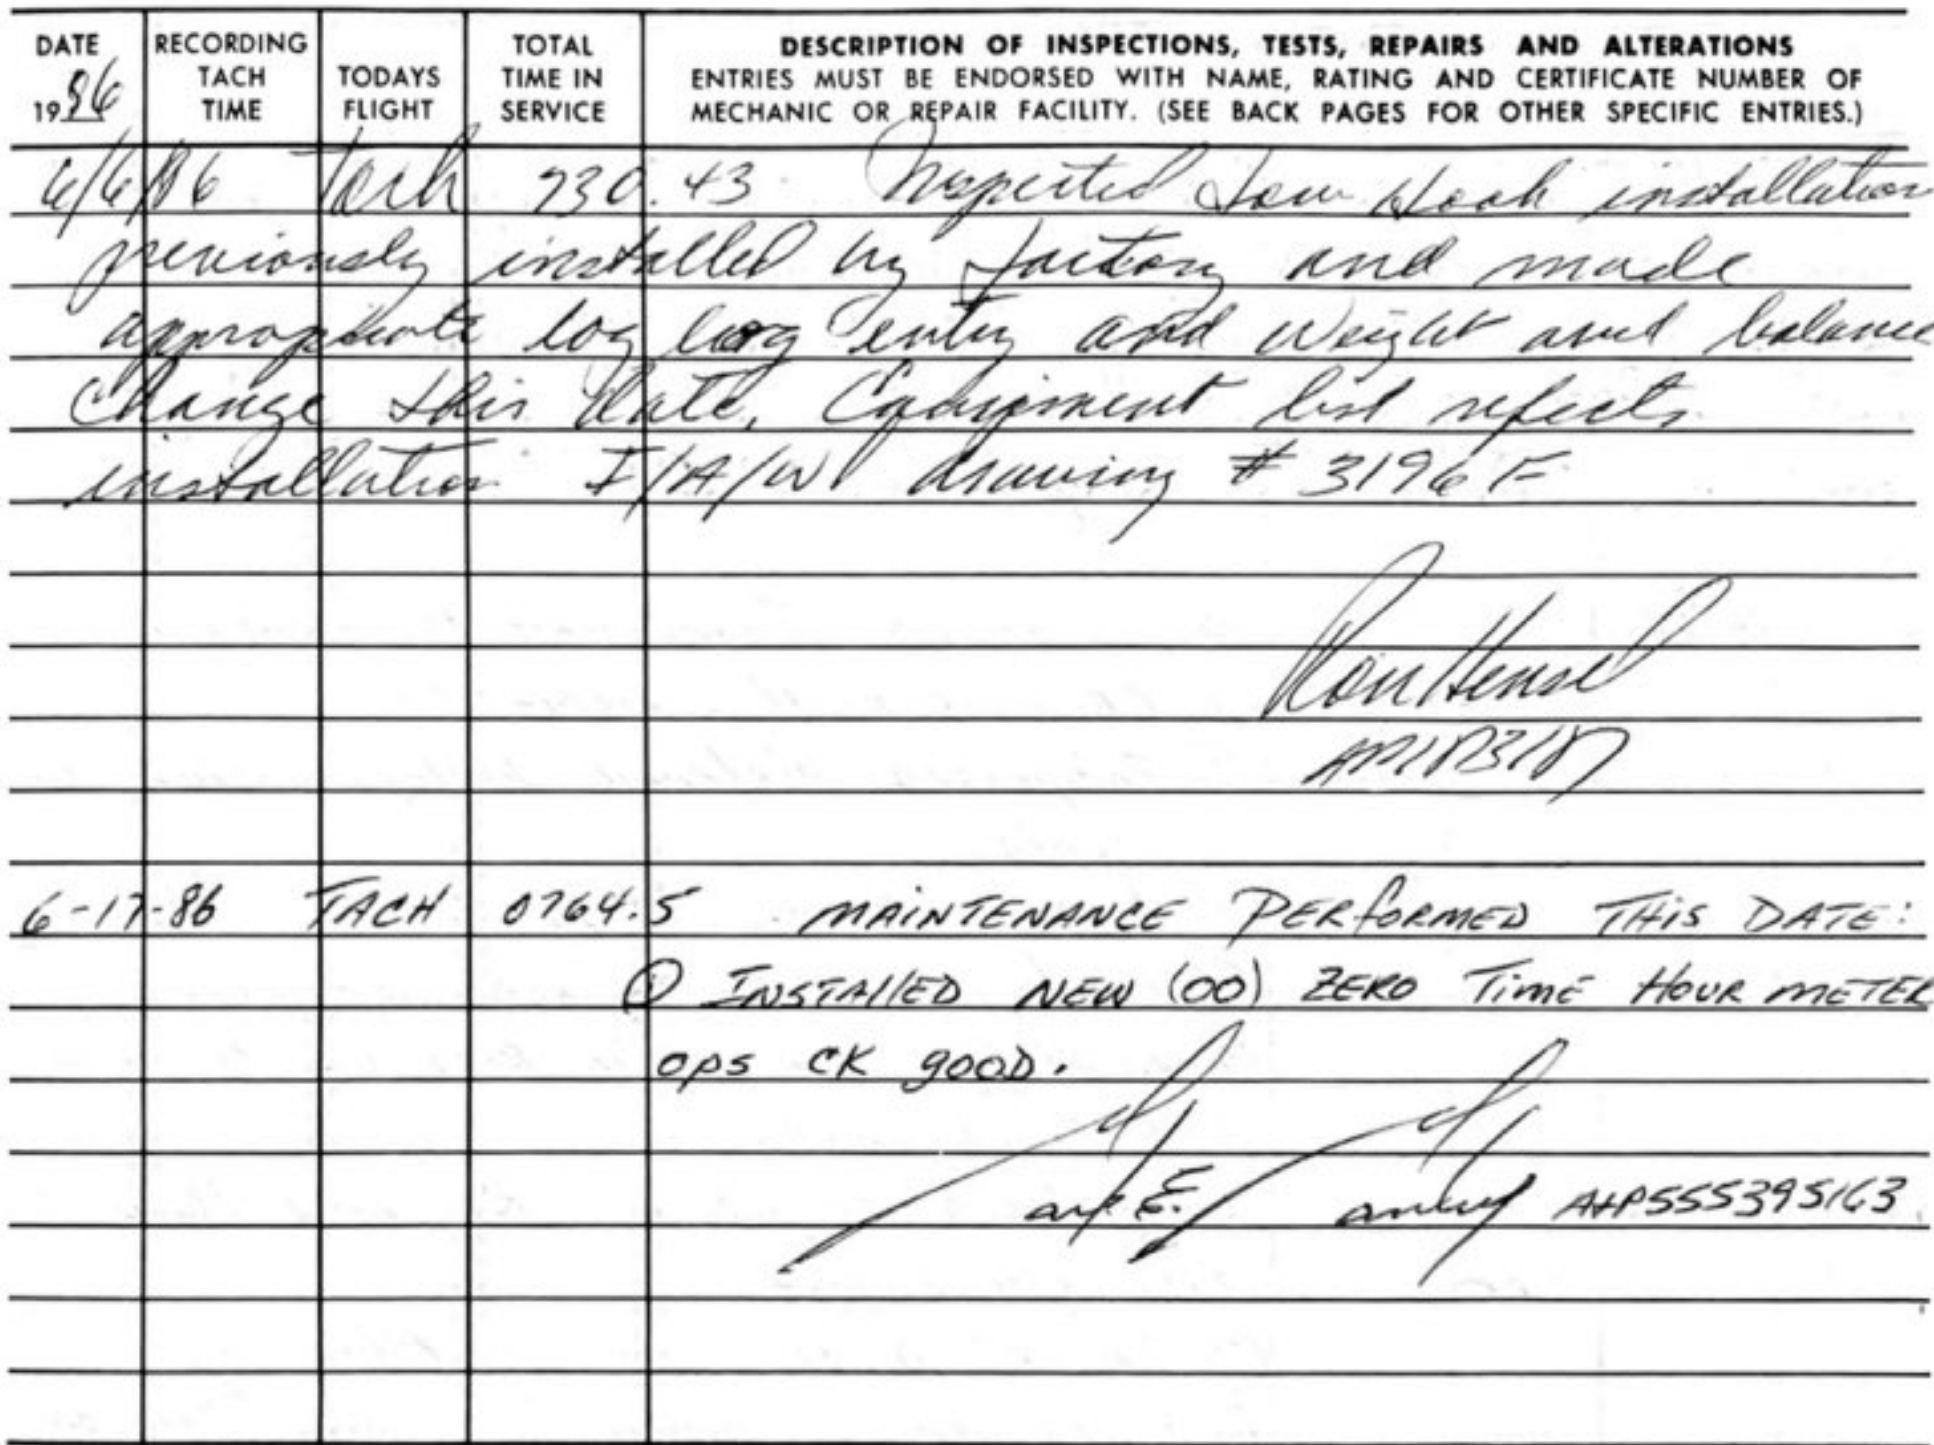 DATE 1986 RECORDING TACH TIME TODAYS FLIGHT TOTAL TIME IN SERVICE DESCRIPTION OF INSPECTIONS, TESTS, REPAIRS AND ALTERATIONS
ENTRIES MUST BE ENDORSED WITH NAME, RATING AND CERTIFICATE NUMBER OF
MECHANIC OR REPAIR FACILITY. (SEE BACK PAGES FOR OTHER SPECIFIC ENTRIES.)
6/6/86 Tach 730.43 Inspected Tow Hook installation
previously installed by factory and made
appropriate log log entry and weight and balance
change this date. Equipment list reflects
installation I/A/W drawing # 3196 F
Ron Hensel
6-17-86 TACH 0764.5 MAINTENANCE PERFORMED THIS DATE:
① INSTALLED NEW (00) ZERO TIME HOUR METER
OPS CK GOOD.
E. A+P555395163